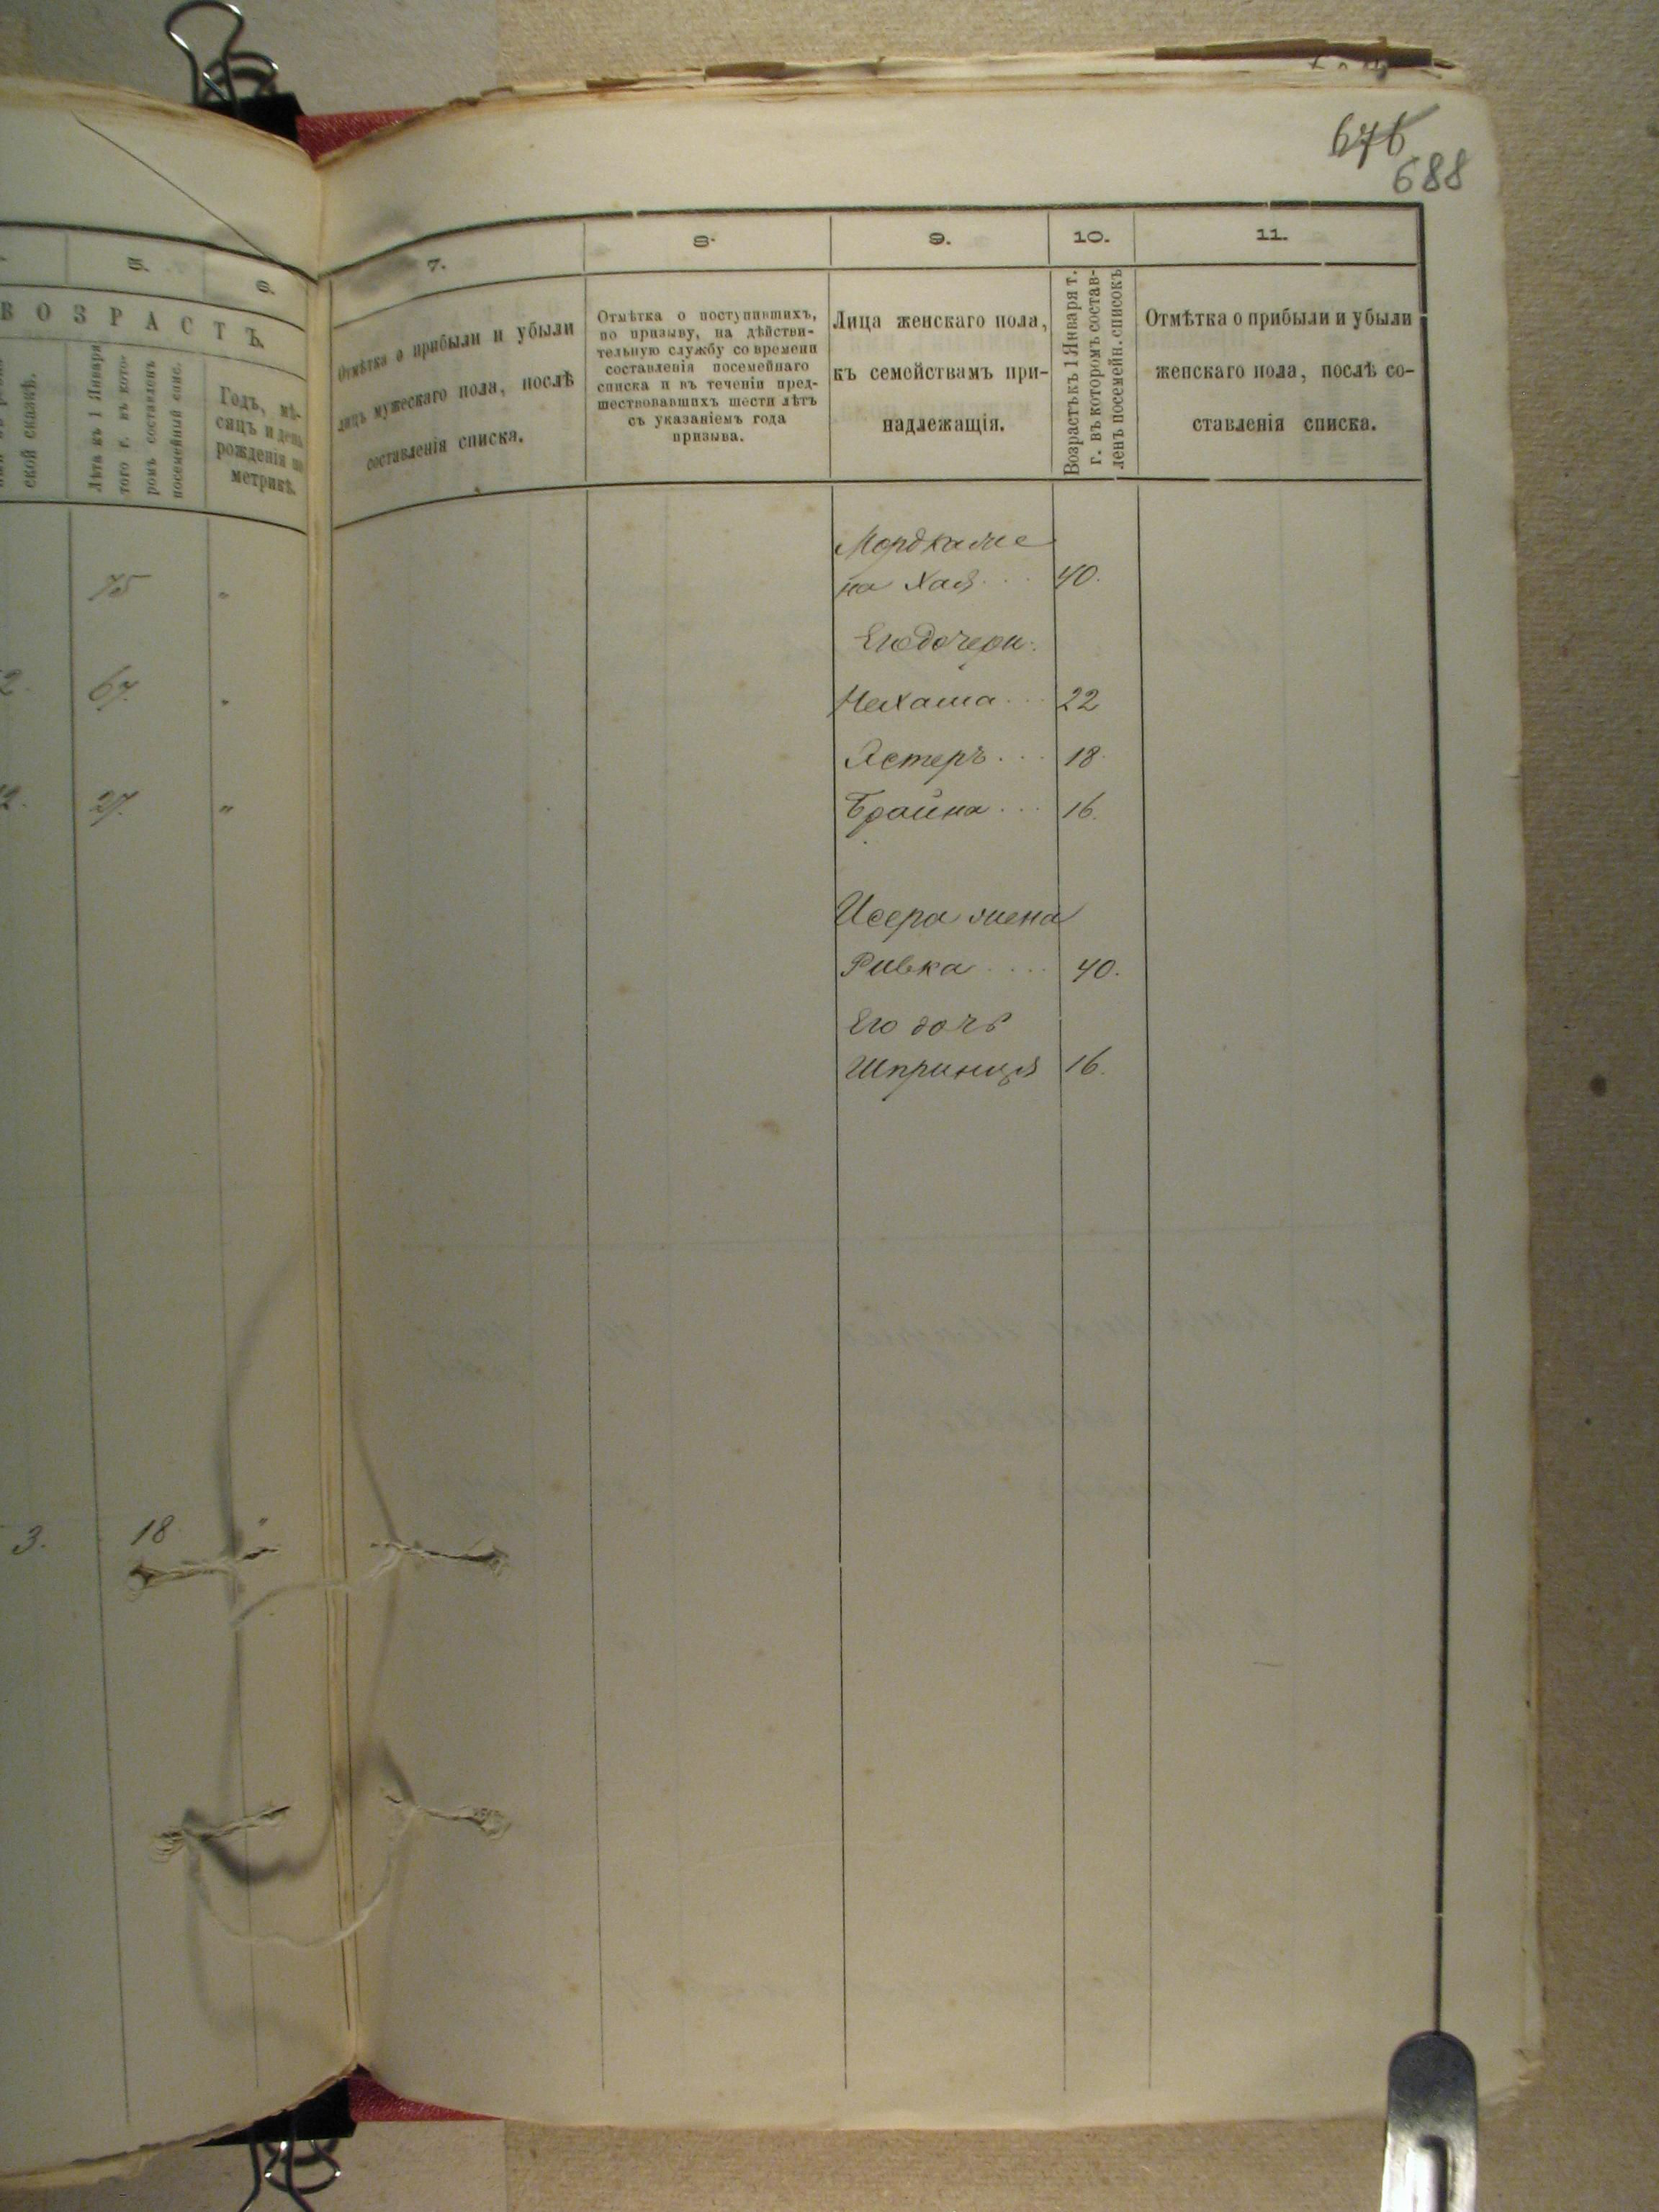 676
688
5.
6.
ВОЗРАСТЪ.
ской сказкѣ.
Лѣта къ 1 Января
того г. въ кото-
ромъ составленъ
посемейный спис.
Годъ, мѣ-
сяцъ и день
рожденія по
метрикѣ.
75 "
2. 67. "
2. 27. "
3. 18 "
7.
8.
9.
10.
11.
Отмѣтка о прибыли и убыли
лицъ мужескаго пола, послѣ
составленія списка.
Отмѣтка о поступившихъ,
по призыву, на дѣйстви-
тельную службу со времени
составленія посемейнаго
списка и въ теченіи пред-
шествовавшихъ шести лѣтъ
съ указаніемъ года
призыва.
Лица женскаго пола,
къ семействамъ при-
надлежащія.
Возрастъ къ 1 Января т.
г. въ которомъ состав-
ленъ посемейн. списокъ
Отмѣтка о прибыли и убыли
женскаго пола, послѣ со-
ставленія списка.
Мордка же
на Хая 40.
Его дочери:
Нехама 22
Эстеръ 18.
Брайна 16.
Исера жена
Ривка 40.
Его дочь
Шпринця 16.